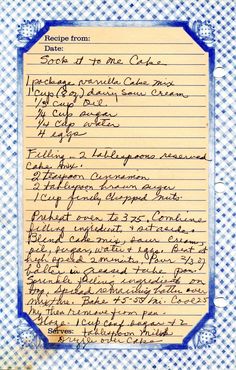 Recipe from:
Date:
Sock it to Me Cake
1 package vanilla Cake mix
1 cup (8 oz) dairy Sour Cream
1/3 cup Oil
1/4 cup sugar
1/4 cup water
4 eggs
Filling - 2 tablespoons reserved
Cake mix.
2 teaspoon cinnamon
2 tablespoon brown sugar
1 cup finely chopped nuts.
Preheat oven to 375. Combine
filling ingredients & set aside.
Blend cake mix, sour cream,
oil, sugar, water & eggs. Beat at
high speed 2 minutes. Pour 2/3 of
batter in greased tube pan.
Sprinkle filling ingredients on
top. Spread remaining batter over
mixture. Bake 45-55 mi. Cool 25
min, then remove from pan.
Glaze. 1 cup conf sugar & 2
Serves: tablespoon milk
Drizzle over Cake